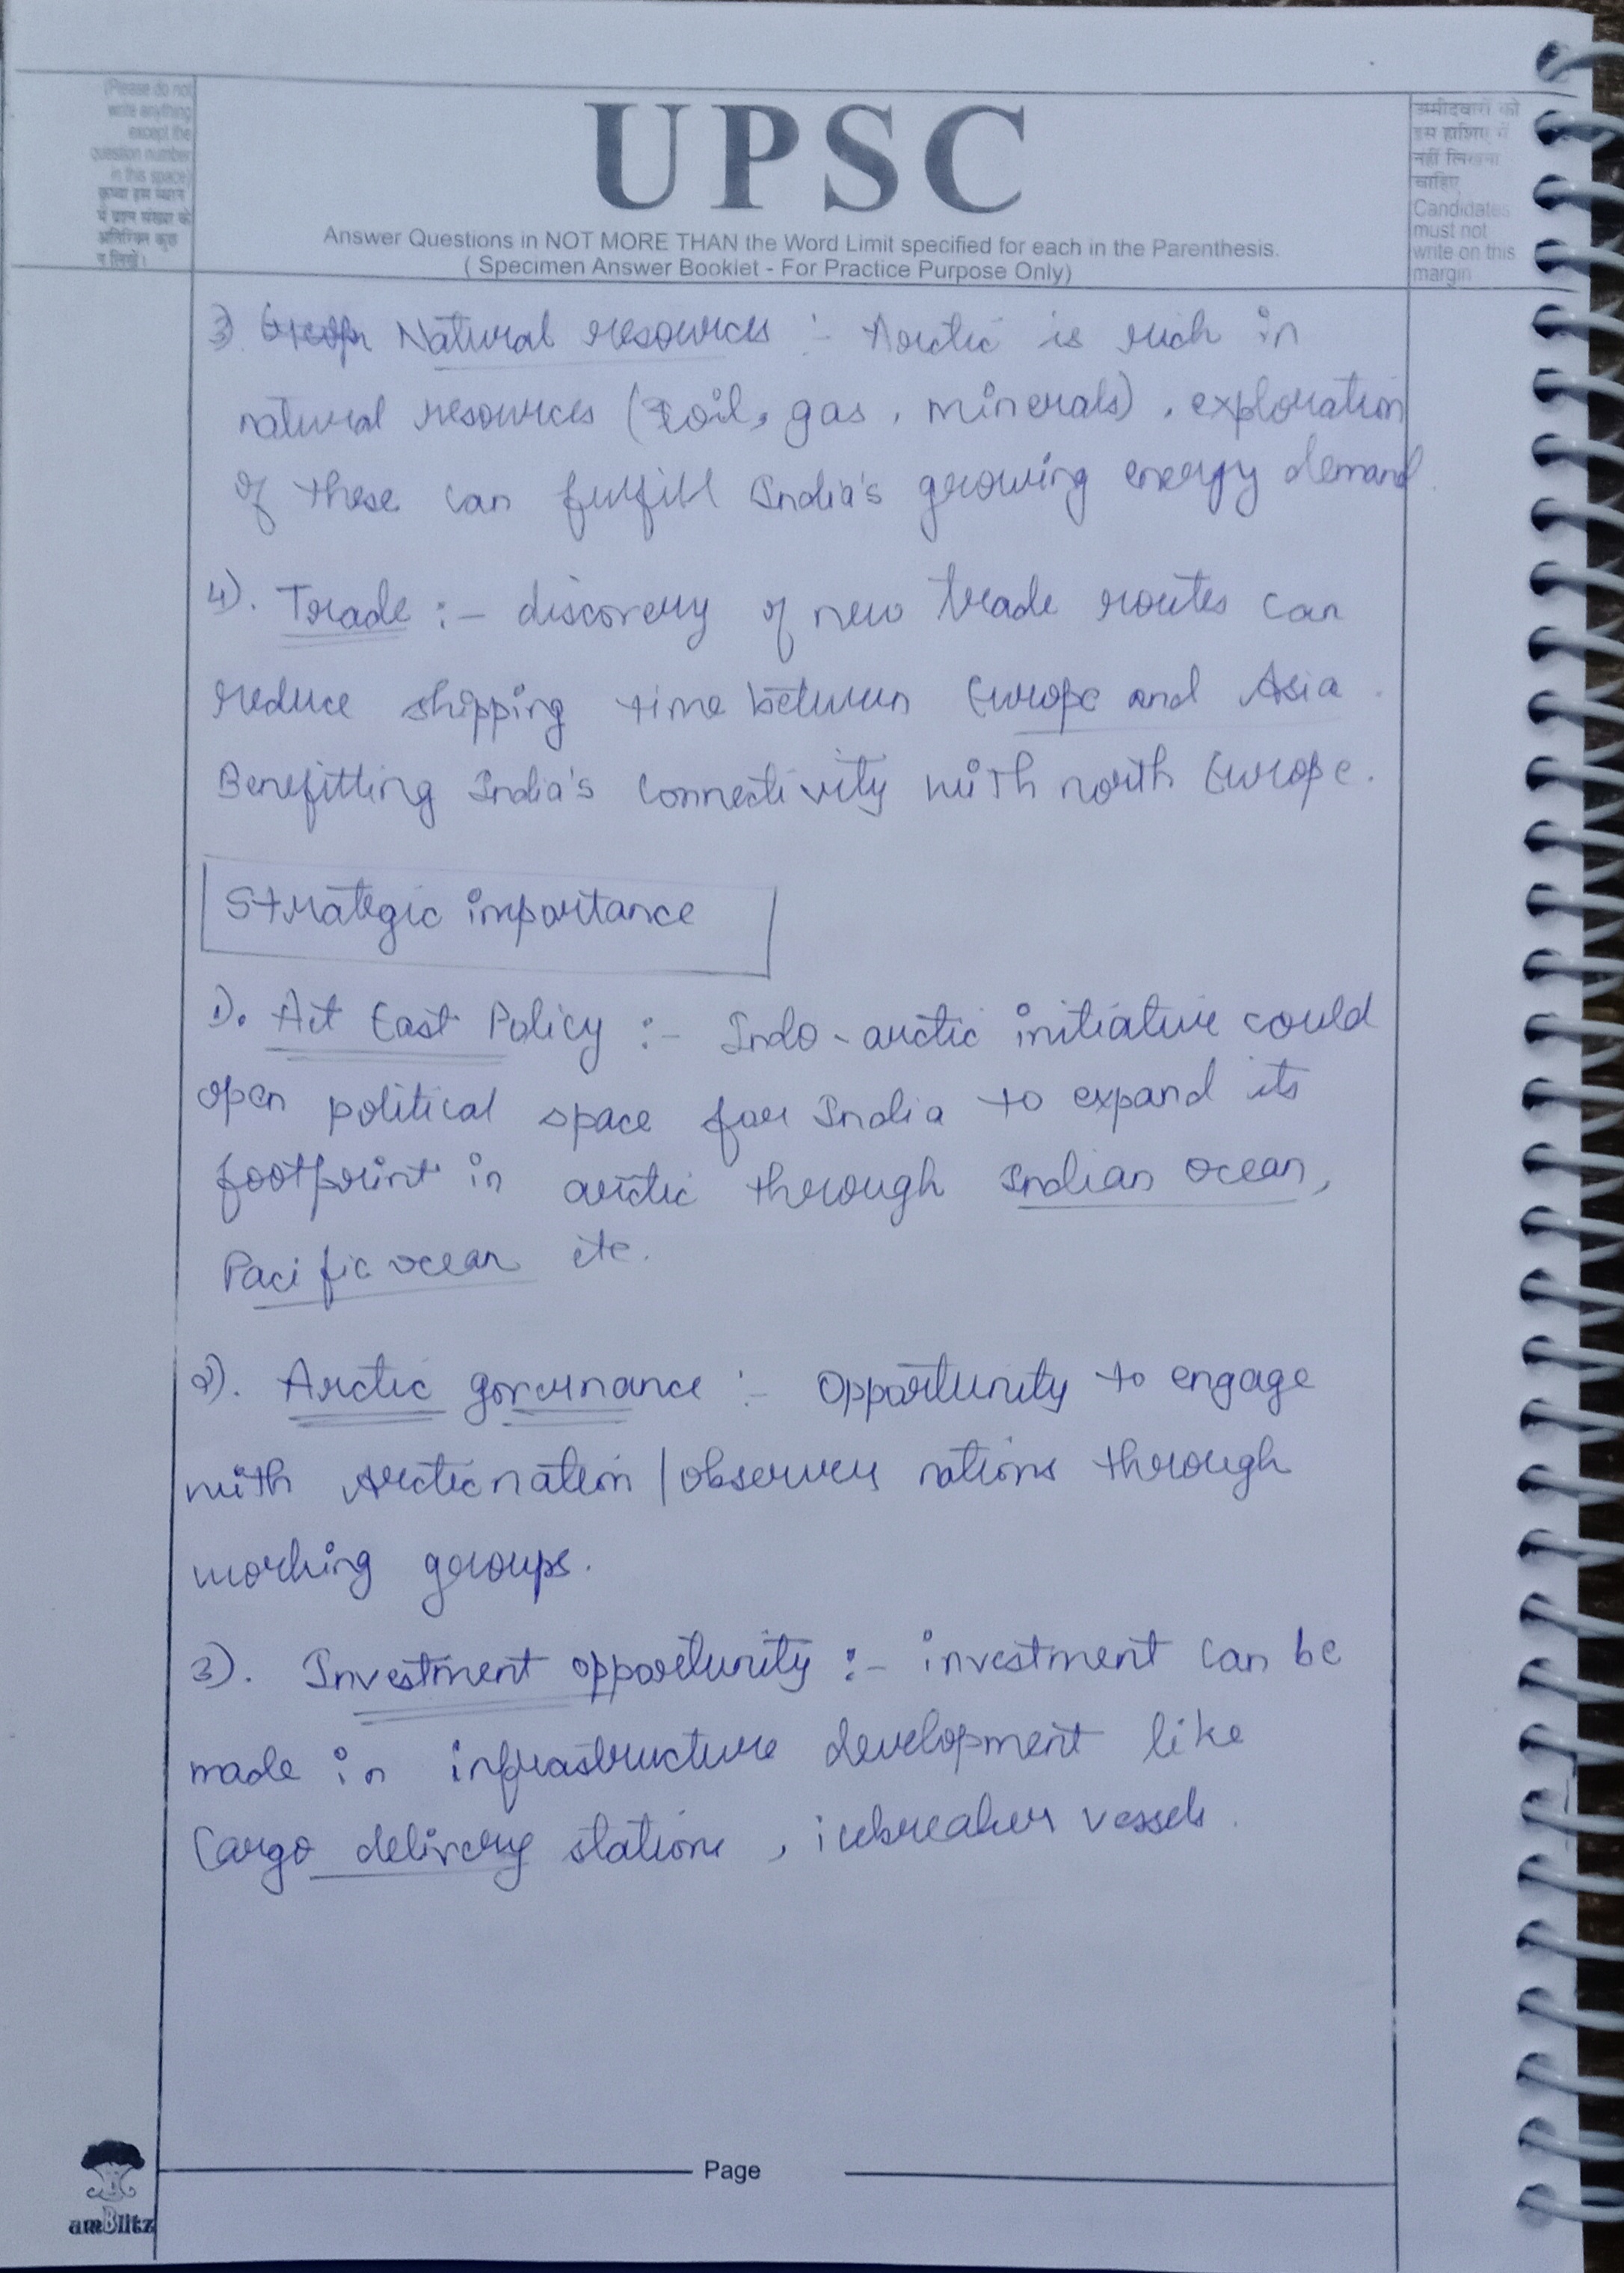 (Please do not
write anything
except the
question number
in this space)
कृपया इस स्थान
में प्रश्न संख्या के
अतिरिक्त कुछ
न लिखें।
UPSC
Answer Questions in NOT MORE THAN the Word Limit specified for each in the Parenthesis.
( Specimen Answer Booklet - For Practice Purpose Only)
उम्मीदवारों को
इस हाशिए में
नहीं लिखना
चाहिए
Candidates
must not
write on this
margin
3) Natural resources :- Arctic is rich in
natural resources (oil, gas, minerals), exploration
of these can fulfill India's growing energy demand.
4). Trade :- discovery of new trade routes can
reduce shipping time between Europe and Asia.
Benefitting India's connectivity with north Europe.
Strategic importance
1). Act East Policy :- Indo-arctic initiative could
open political space for India to expand its
footprint in arctic through Indian ocean,
Pacific ocean etc.
2). Arctic governance :- Opportunity to engage
with Arctic nation / observer nations through
working groups.
3). Investment opportunity :- investment can be
made in infrastructure development like
Cargo delivery stations, icebreaker vessels.
Page
amBlitz